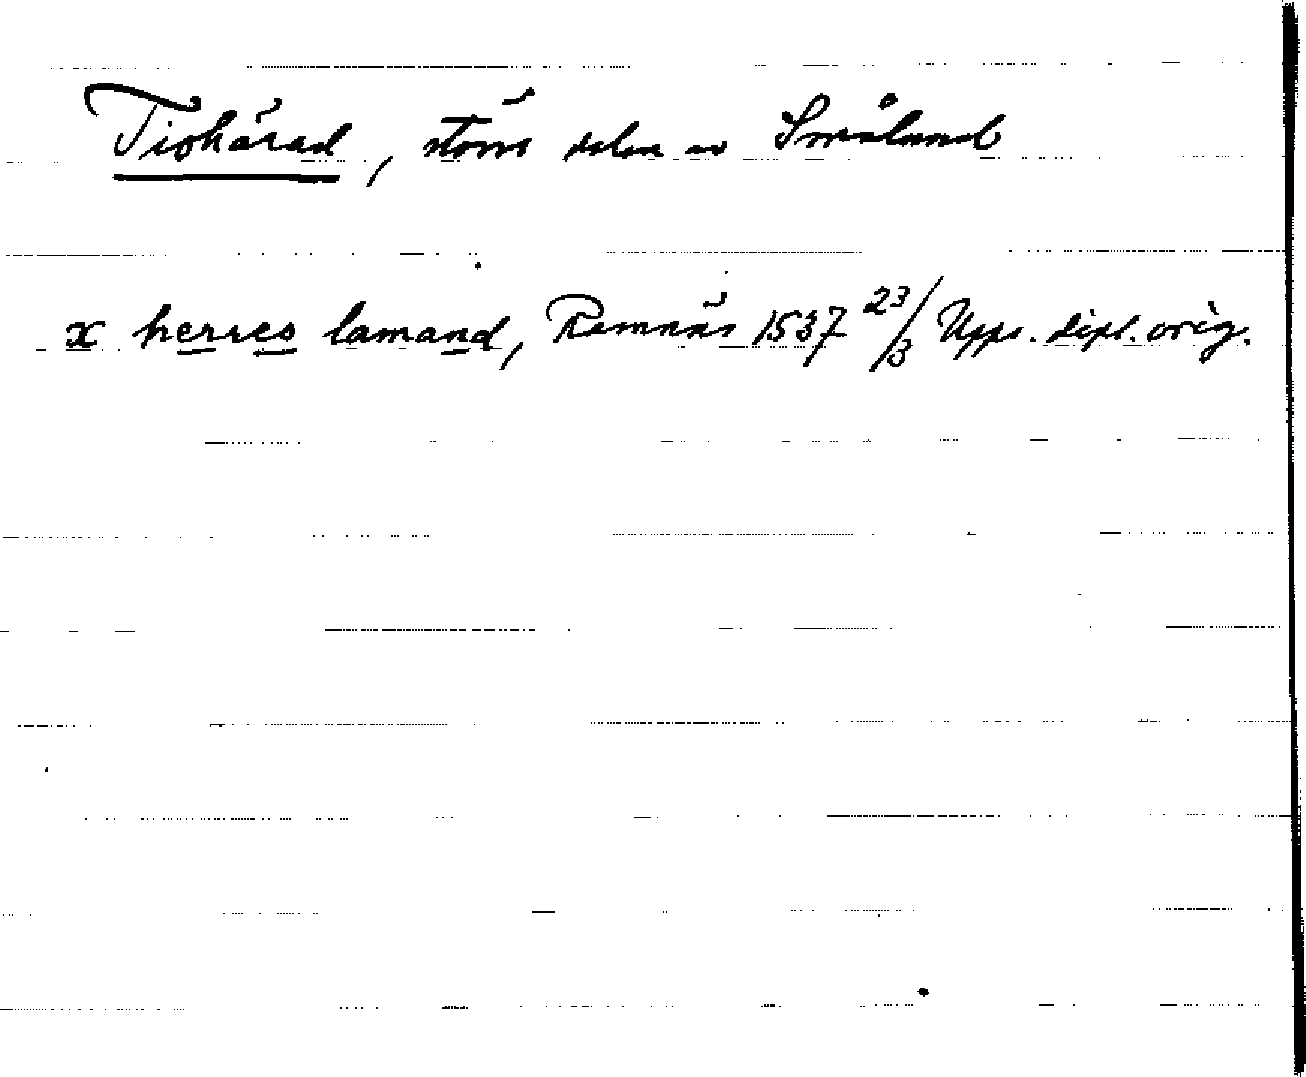 Tiohärad, större delen av Småland
x herres lamand, Ramnäs 1537 23/3 Upps. dipl. orig.